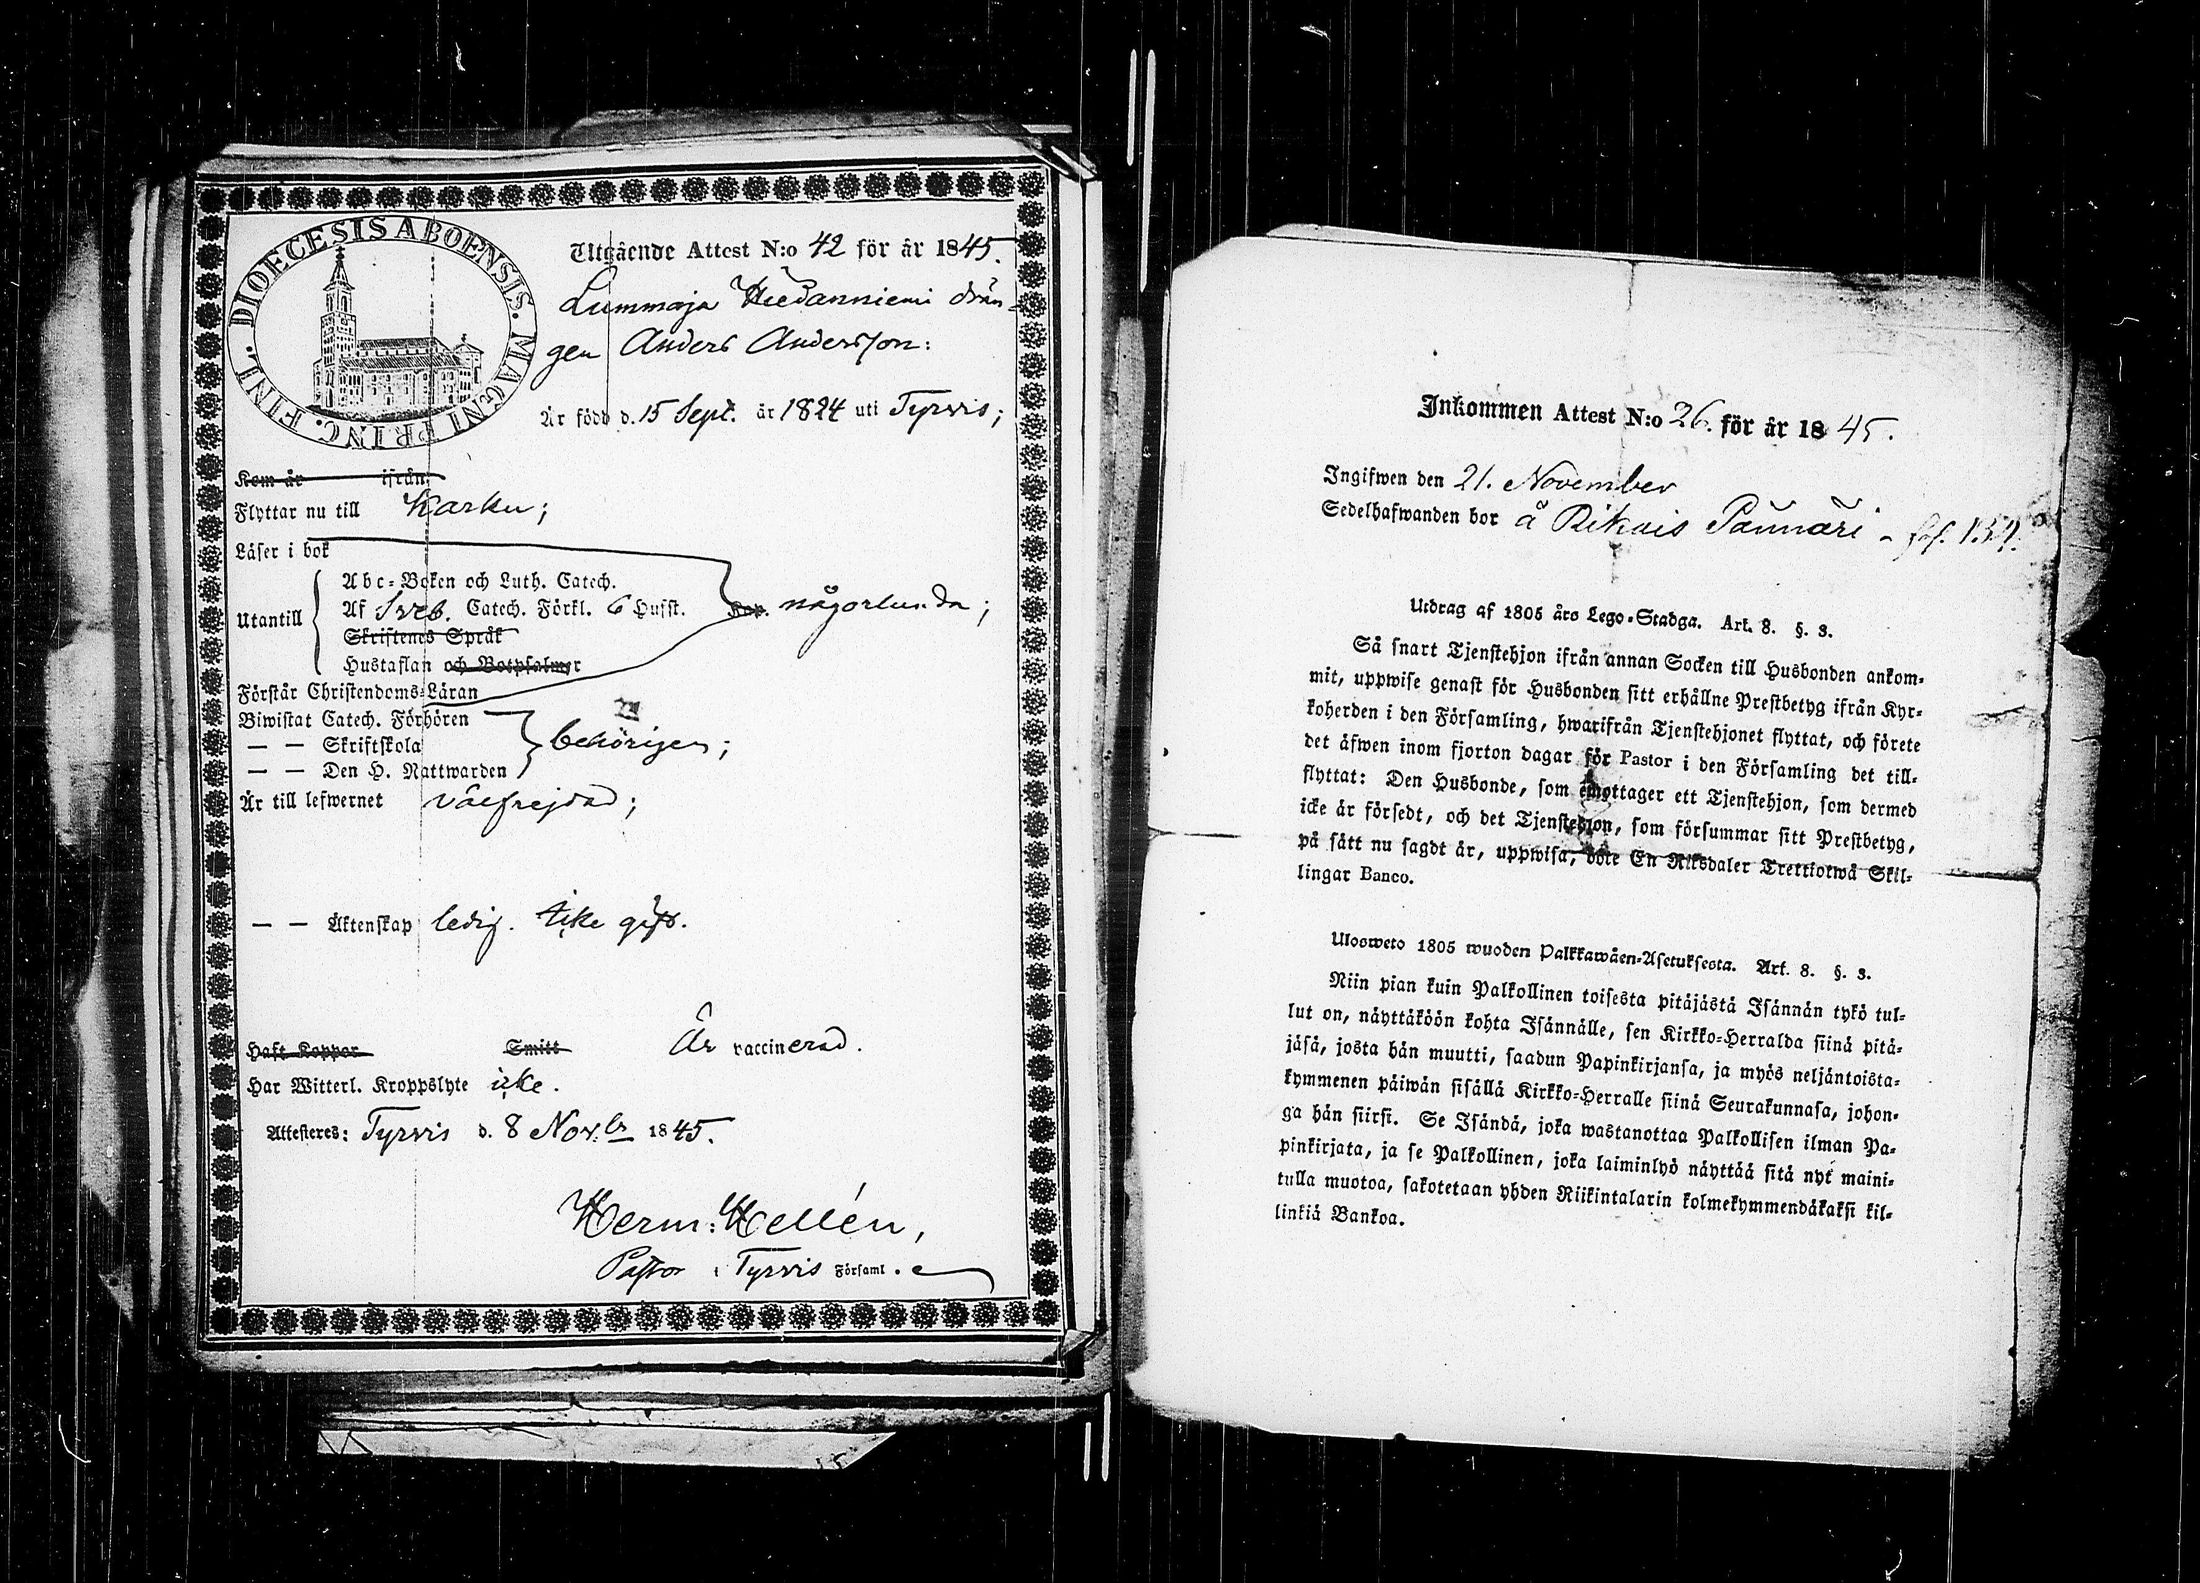 DIOECESIS ABOENSIS. MAGNI PRINC. FINL.
Utgående Attest N:o 42 för år 1845.
Lummaja Hiedanniemi drän-
gen Anders Andersson:
Är född d. 15 Sept. år 1824 uti Tyrvis;
Kom år ifrån
Flyttar nu till Karku;
Läser i bok
Abc-Boken och Luth. Catech.
Utantill Af Sveb. Catech. Förkl. 6 Hufst. Kap. någorlunda;
Skriftenes Språk
Hustaflan och Botpsalmer
Förstår Christendoms-Läran
Biwistat Catech. Förhören
— — Skriftskola behörigen;
— — Den H. Nattwarden
Är till lefwernet välfrejdad;
— — Äktenskap ledig. Icke gift.
Haft Koppor Smitt Är vaccinerad.
Har Witterl. Kroppslyte icke.
Attesteres: Tyrvis d. 8 Nov:br 1845.
Herm: Hellén,
Pastor i Tyrvis Församl.
Inkommen Attest N:o 26. för år 1845.
Ingifwen den 21. November
Sedelhafwanden bor å Rikais Pännäri - fol. 139.
Utdrag af 1805 års Lego-Stadga. Art. 8. §. 3.
Så snart Tjenstehjon ifrån annan Socken till Husbonden ankom-
mit, uppwise genast för Husbonden sitt erhållne Prestbetyg ifrån Kyr-
koherden i den Församling, hwarifrån Tjenstehjonet flyttat, och förete
det äfwen inom fjorton dagar för Pastor i den Församling det till-
flyttat: Den Husbonde, som emottager ett Tjenstehjon, som dermed
icke är försedt, och det Tjenstehjon, som försummar sitt Prestbetyg,
på sätt nu sagdt är, uppwisa, böte En Riksdaler Trettiotwå Skil-
lingar Banco.
Ulosweto 1805 wuoden Palkkawäen-Asetuksesta. Art. 8. §. 3.
Niin pian kuin Palkollinen toisesta pitäjästä Isännän tykö tul-
lut on, näyttäköön kohta Isännälle, sen Kirkko-Herralda siinä pitä-
jäsä, josta hän muutti, saadun Papinkirjansa, ja myös neljäntoista-
kymmenen päiwän sisällä Kirkko-Herralle siinä Seurakunnasa, johon-
ga hän siirsi. Se Isändä, joka wastanottaa Palkollisen ilman Pa-
pinkirjata, ja se Palkollinen, joka laiminlyö näyttää sitä nyt maini-
tulla muotoa, sakotetaan yhden Riikintalarin kolmekymmendäkaksi kil-
linkiä Bankoa.